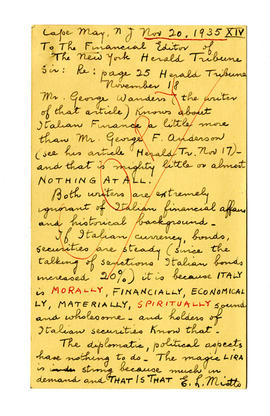 Cape May, N.J Nov 20, 1935 XIV
To The Financial Editor of
The New York Herald Tribune
Sir: Re: page 25 Herald Tribune
November 18
Mr. George Wanders (the writer
of that article) knows about
Italian Finance a little more
than Mr. George F. Anderson
(see his article Herald Tr. Nov 17)-
and that is mighty little or almost
NOTHING AT ALL.
Both writers are extremely
ignorant of Italian financial affairs
and historical background-
If Italian currency, bonds,
securities are steady (since the
talking of sanctions Italian bonds
increased 20%) it is because ITALY
is MORALLY, FINANCIALLY, ECONOMICAL
LY, MATERIALLY, SPIRITUALLY sound
and wholesome- and holders of
Italian securities know that-
The diplomatic, political aspects
have nothing to do- The magic LIRA
is strong because much in
demand and THAT IS THAT E. L. Miotto